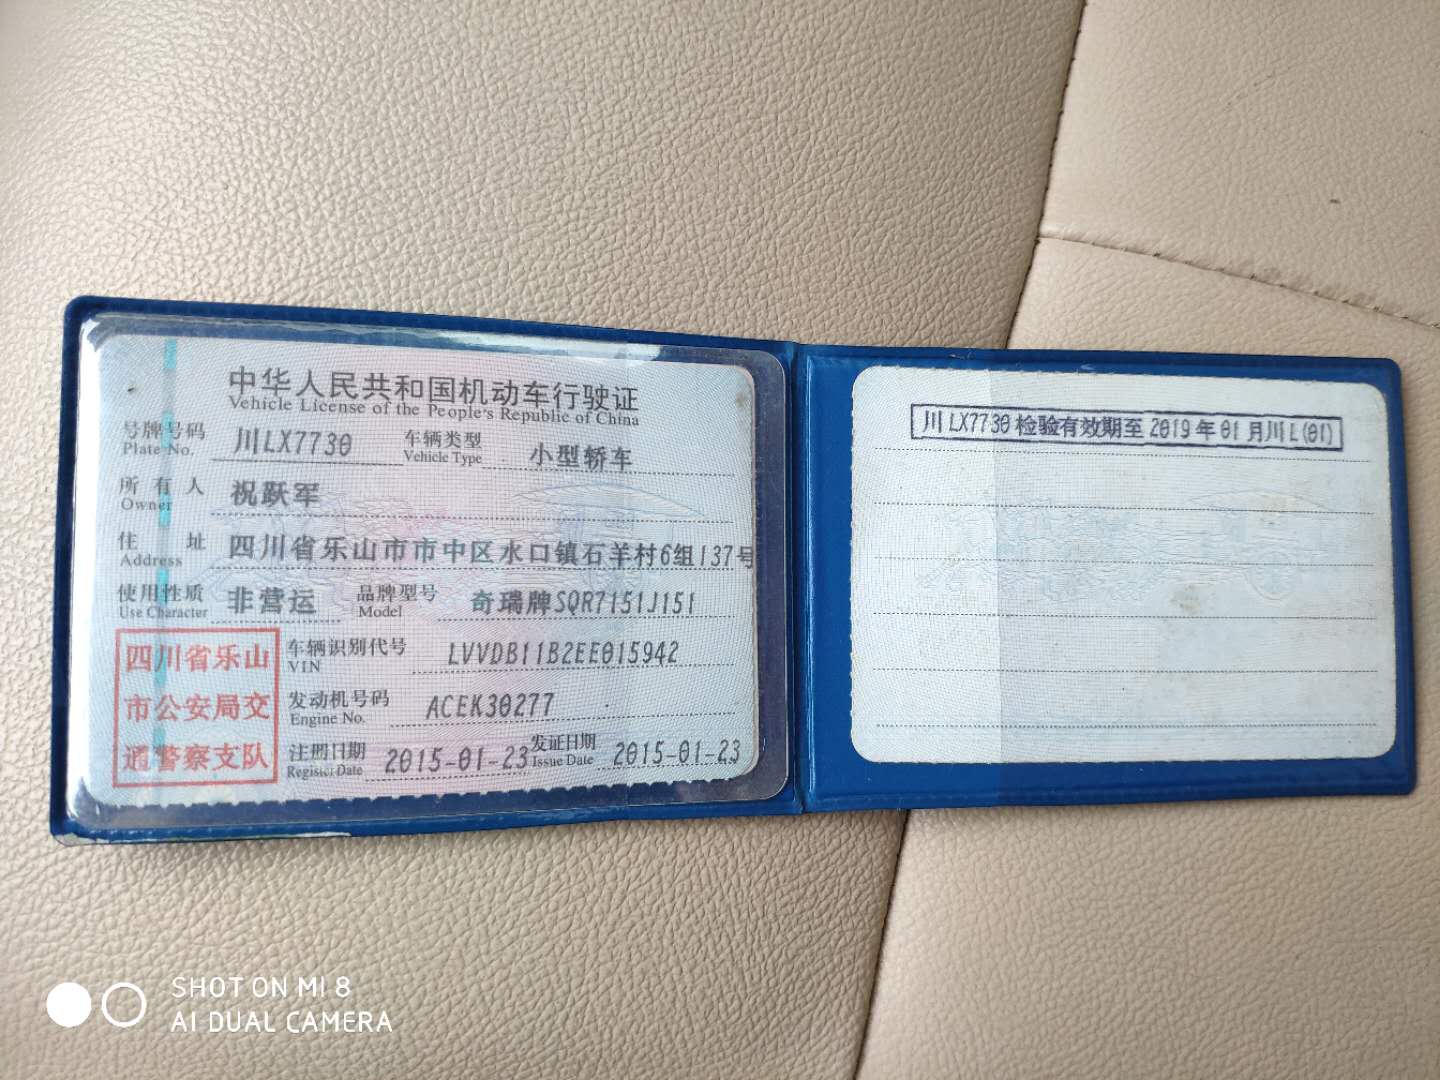 中华人民共和国机动车行驶证
Vehicle License of the People's Republic of China
号牌号码 川LX7730 车辆类型 小型轿车
Plate No. Vehicle Type
所有人 祝跃军
Owner
住址 四川省乐山市市中区水口镇石羊村6组137号
Address
使用性质 非营运 品牌型号 奇瑞牌SQR7151J151
Use Character Model
四川省乐山
市公安局交
通警察支队
车辆识别代号 LVVDB11B2EE015942
VIN
发动机号码 ACEK30277
Engine No.
注册日期 2015-01-23 发证日期 2015-01-23
Register Date Issue Date
川LX7730检验有效期至2019年01月川L(01)
SHOT ON MI 8
AI DUAL CAMERA